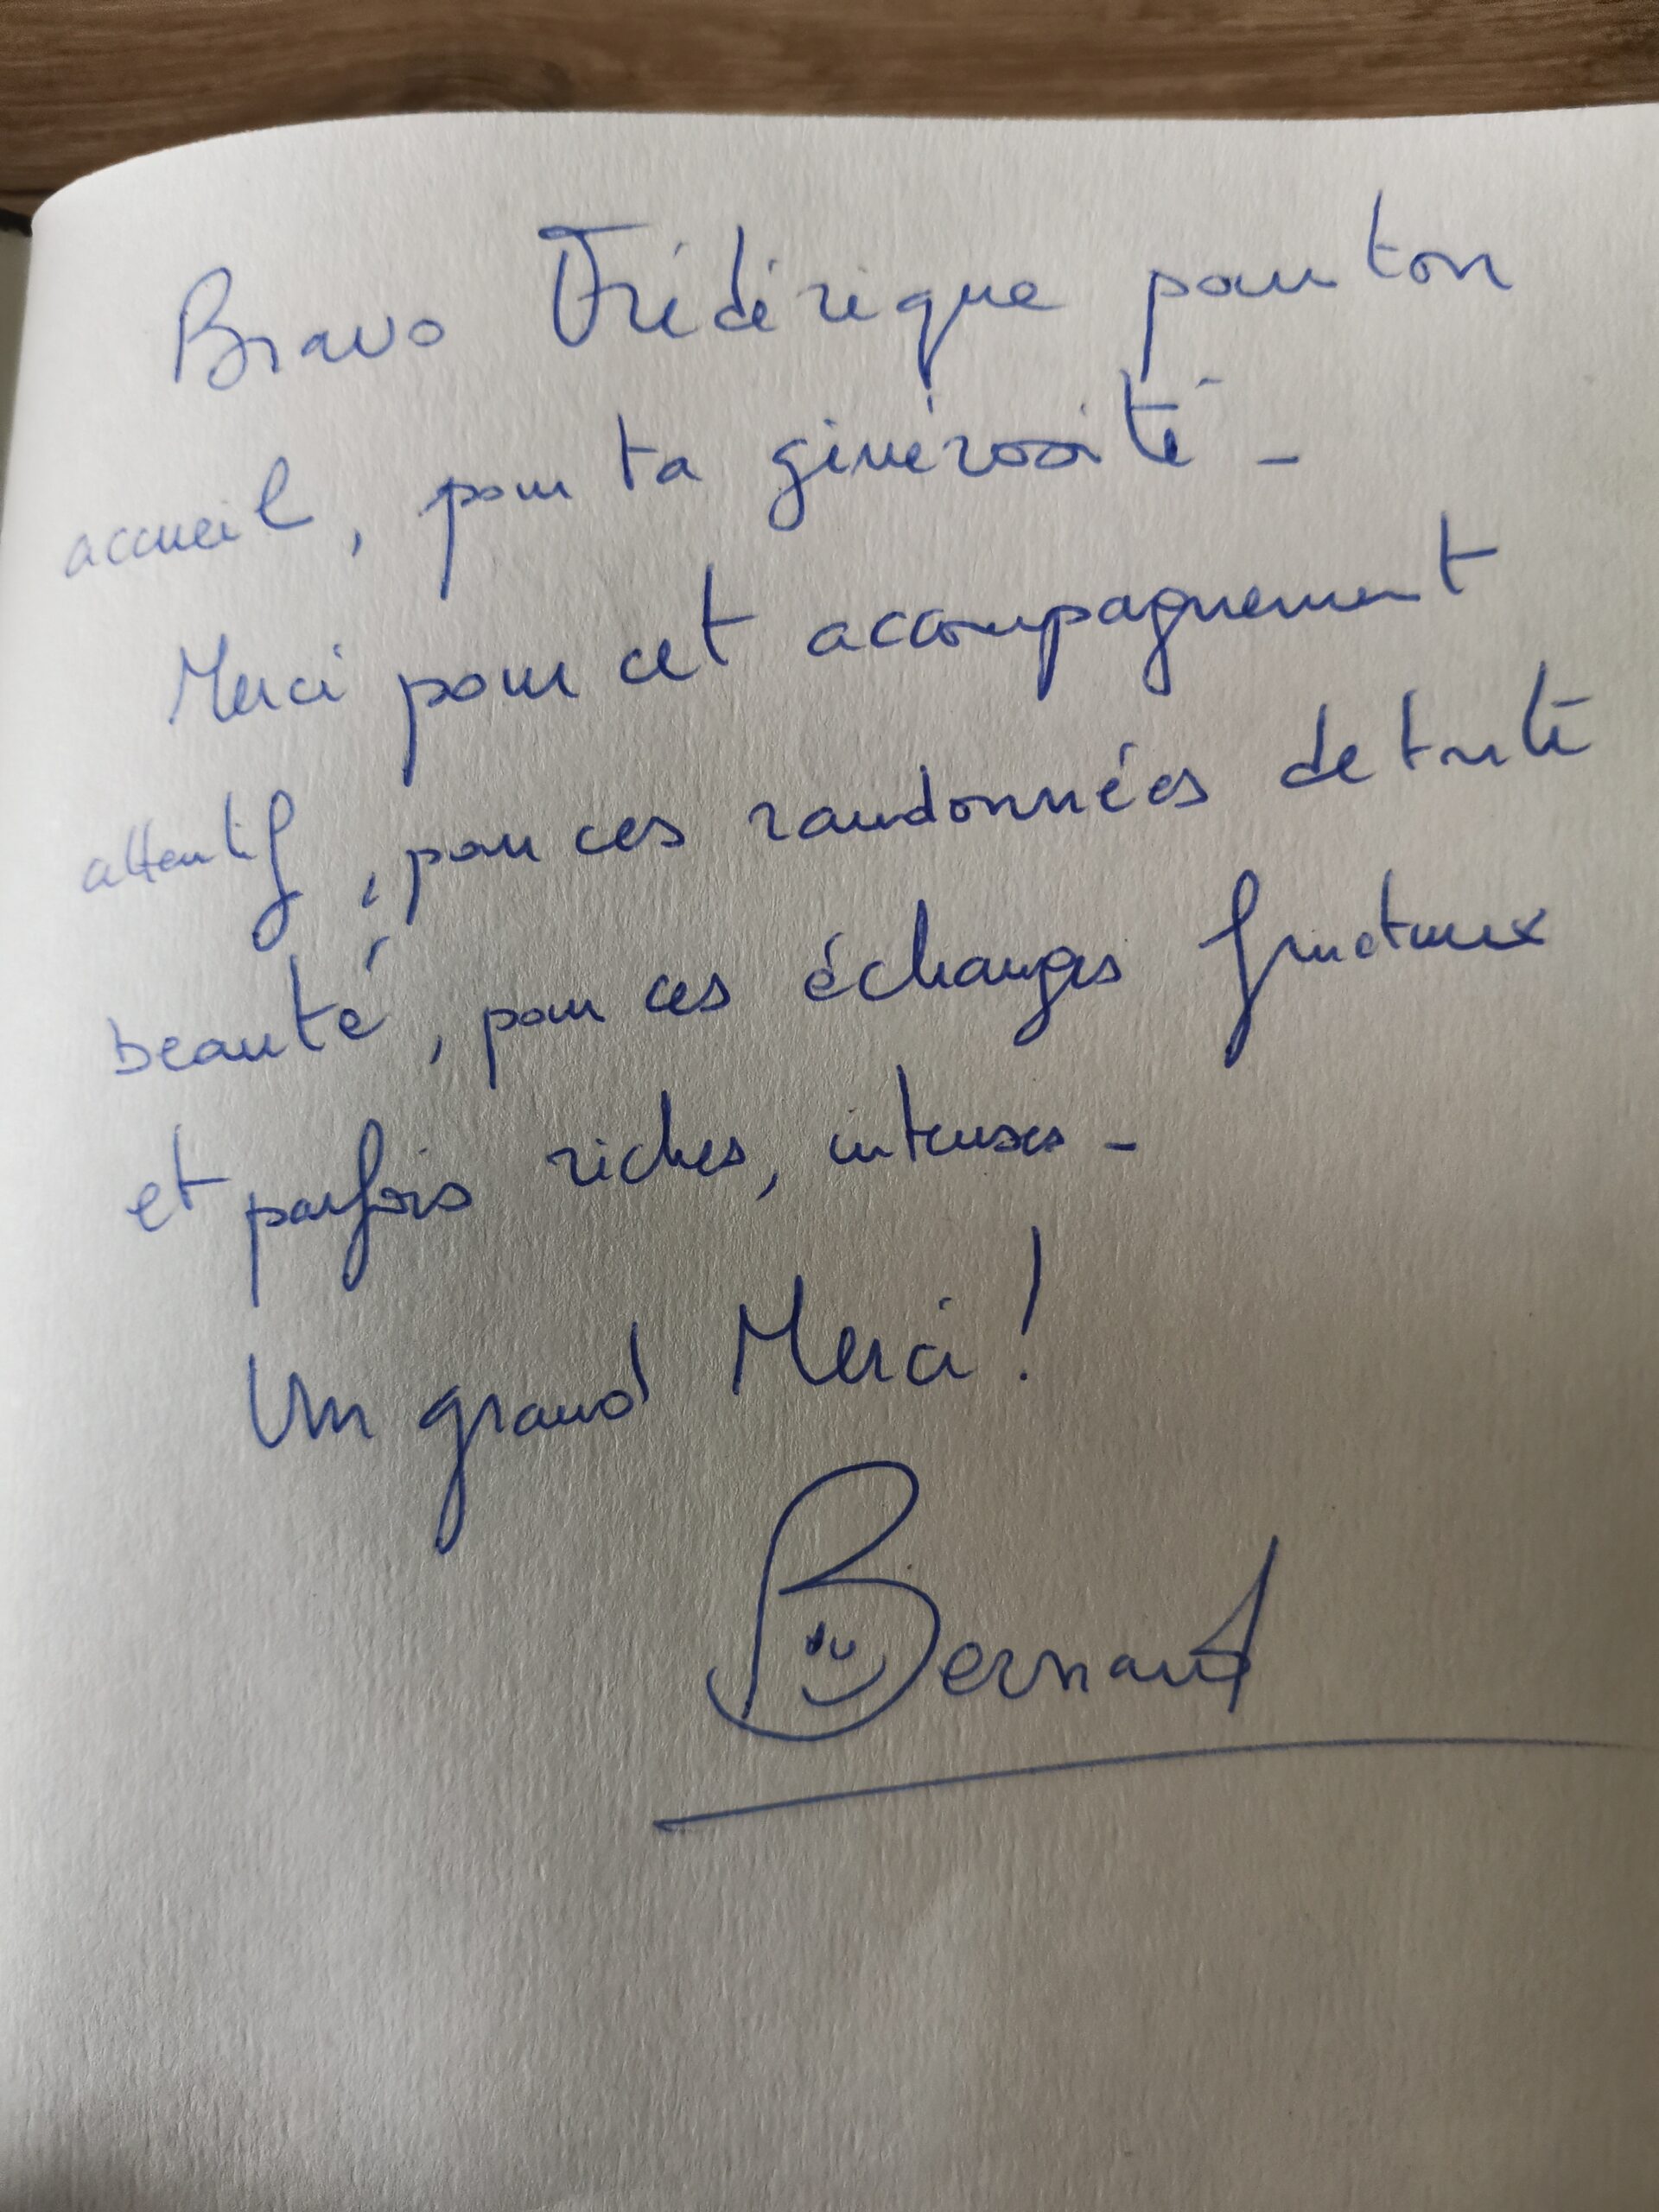 Bravo Frédérique pour ton
accueil, pour ta générosité -
Merci pour cet accompagnement
attentif, pour ces randonnées de toute
beauté, pour ces échanges fructueux
et parfois riches, intenses -
Un grand Merci !
Bernard